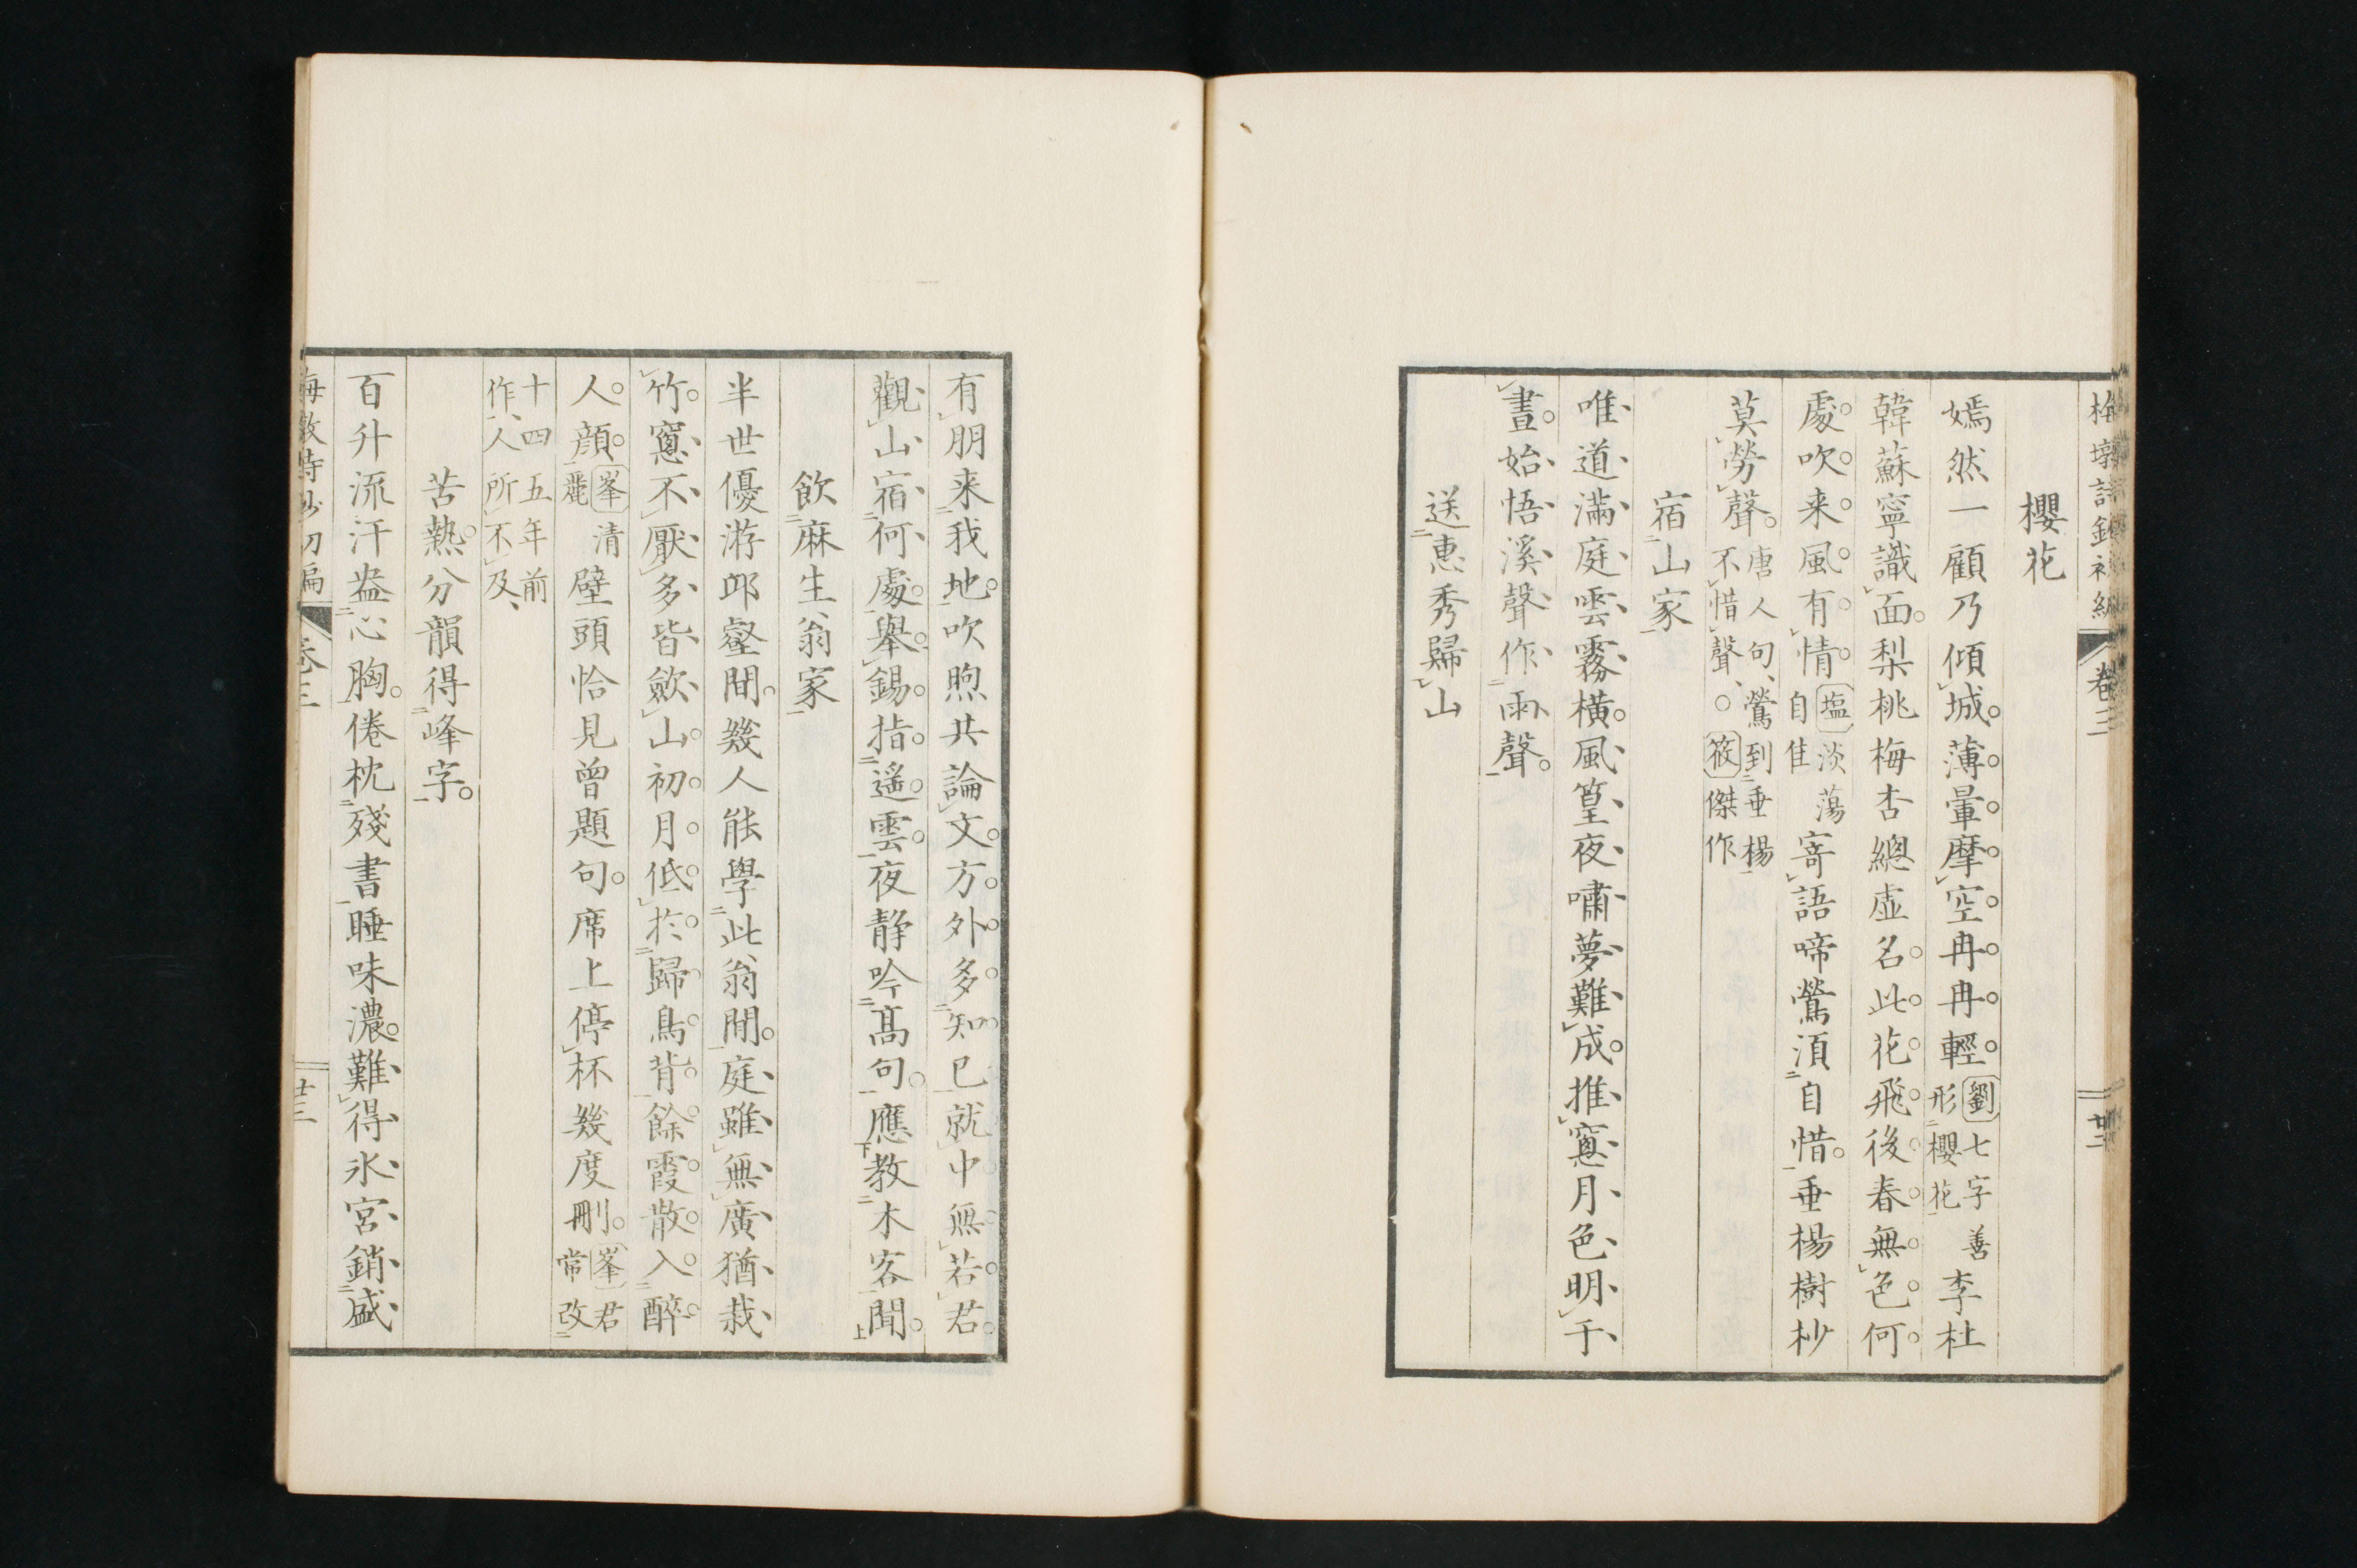 梅墩詩鈔初編 卷三 廿二
櫻花
嫣然一顧乃傾城。薄暈摩空冉冉輕。劉七字善形櫻花李杜
韓蘇寧識面。梨桃梅杏總虛名。此花飛後春無色。何
處吹来風有情。塩淡蕩自佳寄語啼鶯湏自惜。垂楊樹杪
莫勞聲。唐人句、鶯到垂楊不惜聲、○筱傑作
宿山家
唯道滿庭雲霧橫。風篁夜嘯夢難成。推窻月色明于
晝。始悟溪聲作雨聲。
送惠秀歸山
有朋来我地。吹煦共論文。方外多知已就中無若君。
觀山宿何處。舉錫指遙雲。夜静吟高句。應教木客聞。
飲麻生翁家
半世優游邱壑間。幾人能學此翁閒。庭雖無廣猶栽
竹。窻不厭多皆歛山。初月低於歸鳥背。餘霞散入醉
人顔。峯清麗壁頭恰見曾題句。席上停杯幾度刪。峯君常改
十四五年前作、人所不及、
苦熱。分韻得峰字。
百升流汗盎心胸。倦枕殘書睡味濃。難得氷宮銷盛
梅墩詩鈔初編 卷三 廿三